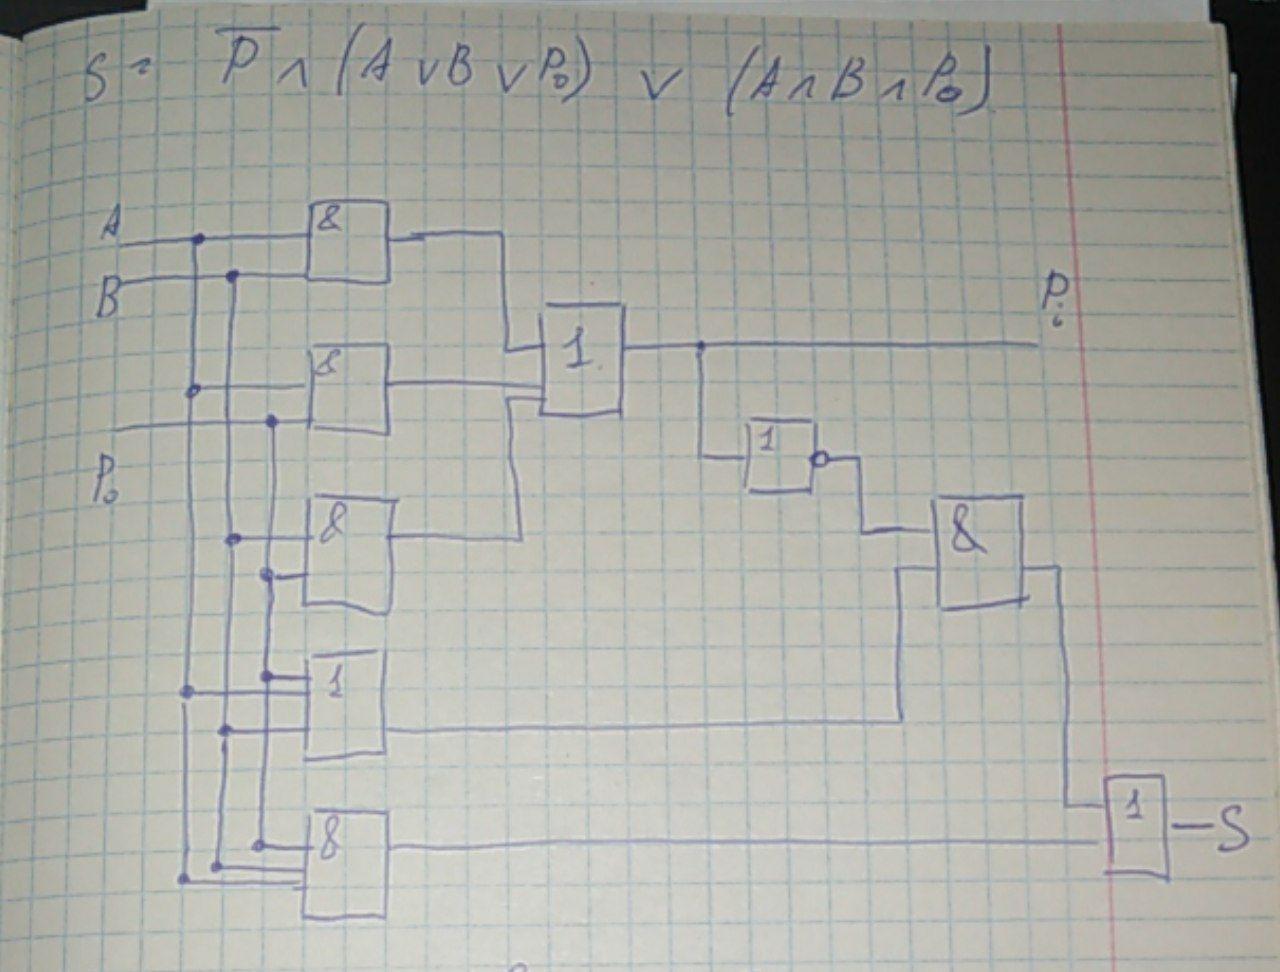 S = P̅ ∧ (A ∨ B ∨ P₀) ∨ (A ∧ B ∧ P₀)
A
&
B
Pᵢ
1
&
P₀
1
&
&
1
1
S
&